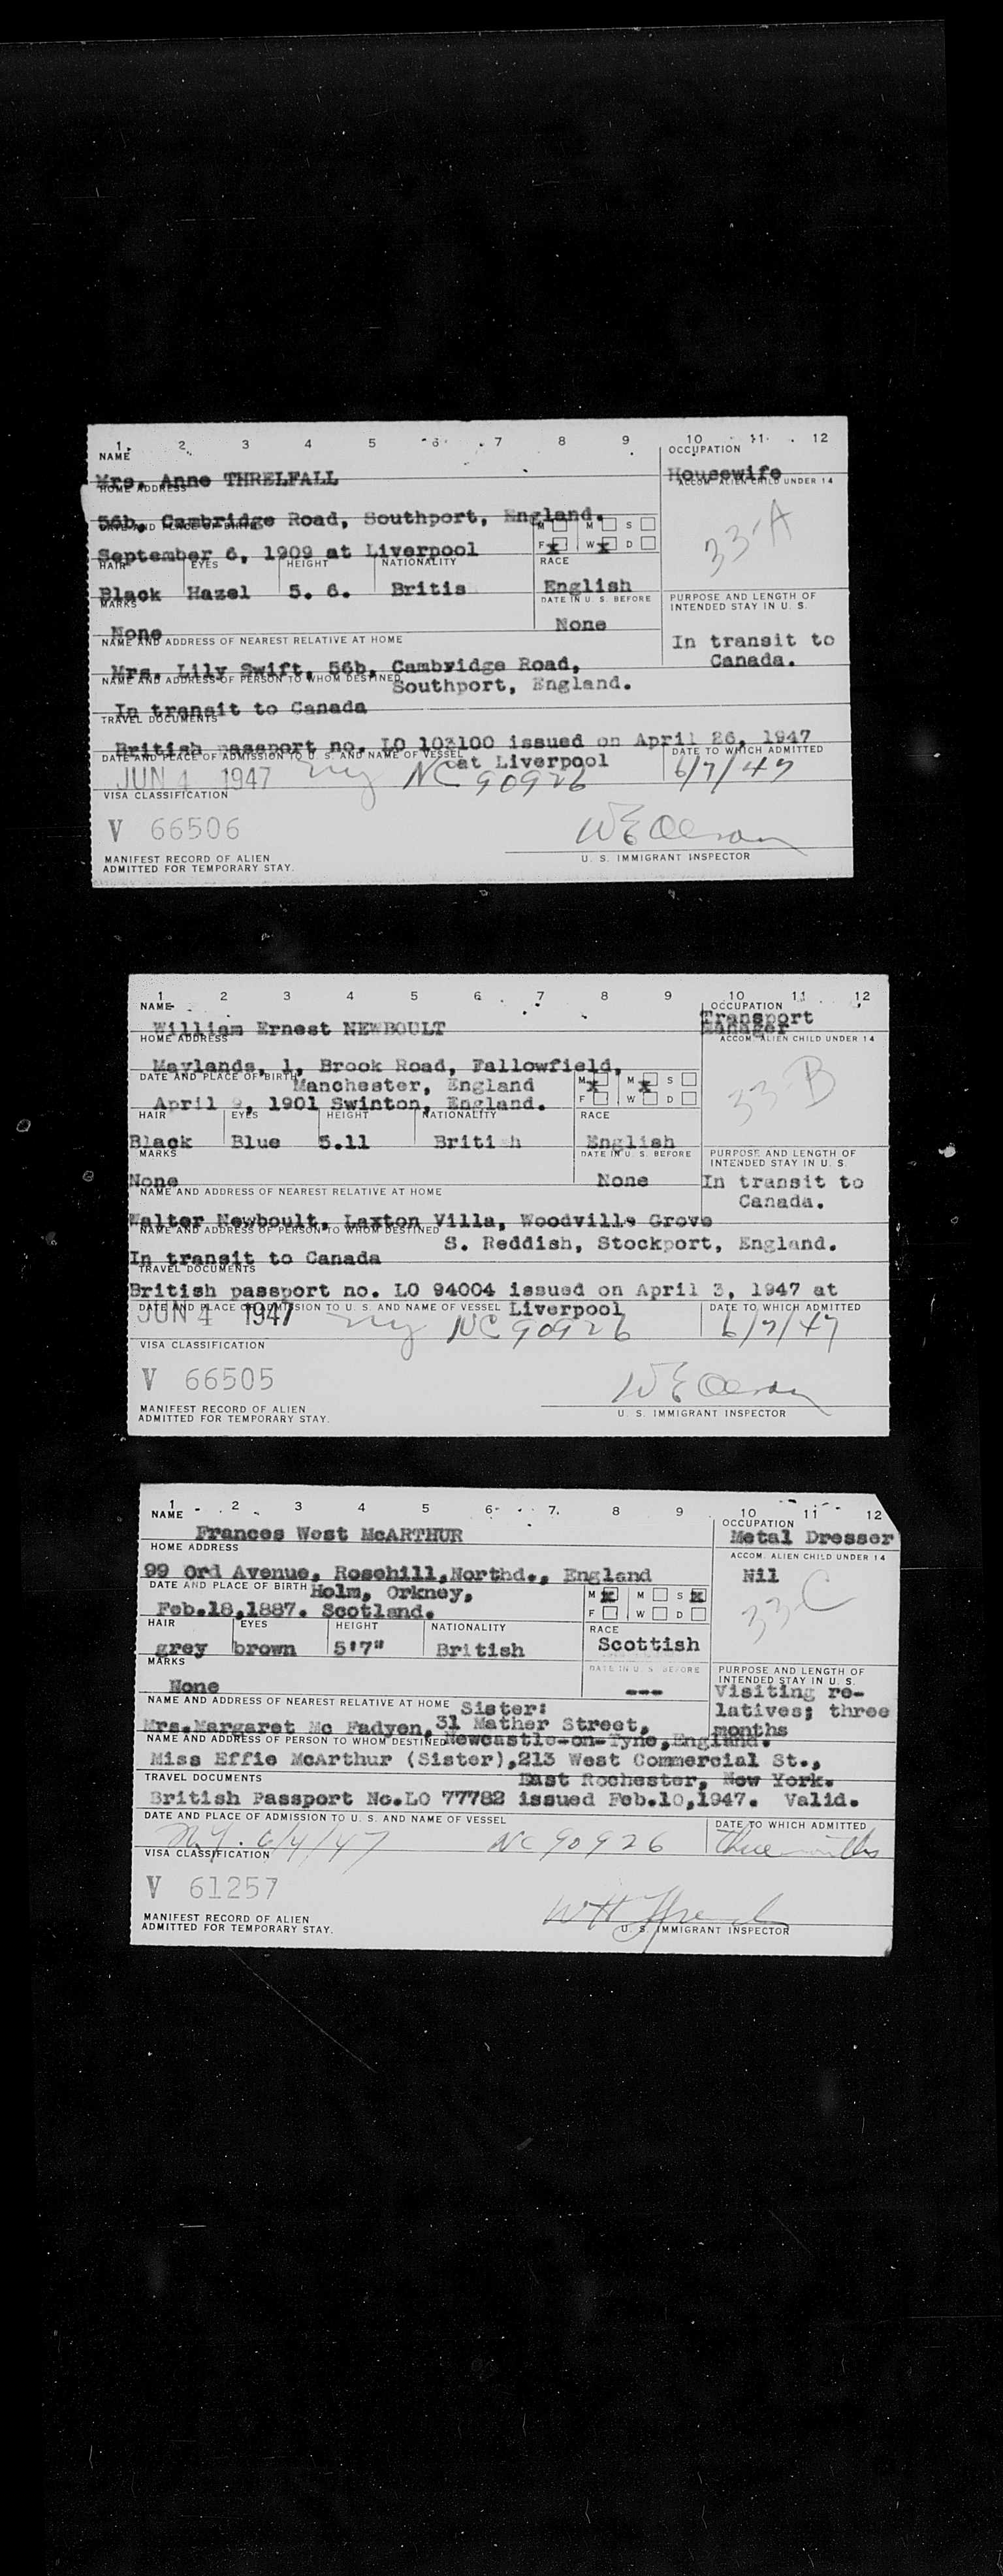 1 2 3 4 5 6 7 8 9 10 11 12
NAME OCCUPATION
Mrs. Anne THRELFALL Housewife
HOME ADDRESS ACCOM. ALIEN CHILD UNDER 14
56b, Cambridge Road, Southport, England.
DATE AND PLACE OF BIRTH M M S
33-A
September 6, 1909 at Liverpool F x W x D
HAIR EYES HEIGHT NATIONALITY RACE
Black Hazel 5. 6. Britis English
MARKS DATE IN U. S. BEFORE PURPOSE AND LENGTH OF
INTENDED STAY IN U. S.
None None
NAME AND ADDRESS OF NEAREST RELATIVE AT HOME In transit to
Mrs. Lily Swift, 56b, Cambridge Road, Canada.
NAME AND ADDRESS OF PERSON TO WHOM DESTINED Southport, England.
In transit to Canada
TRAVEL DOCUMENTS
British passport no. LO 103100 issued on April 26, 1947
DATE AND PLACE OF ADMISSION TO U. S. AND NAME OF VESSEL at Liverpool DATE TO WHICH ADMITTED
JUN 4 1947 ny NC 90926 6/7/47
VISA CLASSIFICATION
V 66506
W E Olson
MANIFEST RECORD OF ALIEN U. S. IMMIGRANT INSPECTOR
ADMITTED FOR TEMPORARY STAY.
1 2 3 4 5 6 7 8 9 10 11 12
NAME OCCUPATION
William Ernest NEWBOULT Transport
Manager
HOME ADDRESS ACCOM. ALIEN CHILD UNDER 14
Maylands, 1, Brook Road, Fallowfield,
DATE AND PLACE OF BIRTH Manchester, England M x M x S
33-B
April 9, 1901 Swinton, England. F W D
HAIR EYES HEIGHT NATIONALITY RACE
Black Blue 5.11 British English
MARKS DATE IN U. S. BEFORE PURPOSE AND LENGTH OF
INTENDED STAY IN U. S.
None None In transit to
NAME AND ADDRESS OF NEAREST RELATIVE AT HOME Canada.
Walter Newboult, Laxton Villa, Woodville Grove
NAME AND ADDRESS OF PERSON TO WHOM DESTINED S. Reddish, Stockport, England.
In transit to Canada
TRAVEL DOCUMENTS
British passport no. LO 94004 issued on April 3, 1947 at
DATE AND PLACE OF ADMISSION TO U. S. AND NAME OF VESSEL Liverpool DATE TO WHICH ADMITTED
JUN 4 1947 ny NC 90926 6/7/47
VISA CLASSIFICATION
V 66505
W E Olson
MANIFEST RECORD OF ALIEN U. S. IMMIGRANT INSPECTOR
ADMITTED FOR TEMPORARY STAY.
1 2 3 4 5 6 7 8 9 10 11 12
NAME OCCUPATION
Frances West McARTHUR Metal Dresser
HOME ADDRESS ACCOM. ALIEN CHILD UNDER 14
99 Ord Avenue, Rosehill,Northd., England Nil
DATE AND PLACE OF BIRTH Holm, Orkney, M x M S x
33-C
Feb.18,1887. Scotland. F W D
HAIR EYES HEIGHT NATIONALITY RACE
grey brown 5'7" British Scottish
MARKS DATE IN U. S. BEFORE PURPOSE AND LENGTH OF
INTENDED STAY IN U. S.
None --- Visiting re-
NAME AND ADDRESS OF NEAREST RELATIVE AT HOME Sister: latives; three
Mrs.Margaret Mc Fadyen,31 Mather Street, months
NAME AND ADDRESS OF PERSON TO WHOM DESTINED Newcastle-on-Tyne,England.
Miss Effie McArthur (Sister),213 West Commercial St.,
TRAVEL DOCUMENTS East Rochester, New York.
British Passport No.LO 77782 issued Feb.10,1947. Valid.
DATE AND PLACE OF ADMISSION TO U. S. AND NAME OF VESSEL DATE TO WHICH ADMITTED
N.Y. 6/4/47 NC 90926 three months
VISA CLASSIFICATION
V 61257
MANIFEST RECORD OF ALIEN
ADMITTED FOR TEMPORARY STAY. U. S. IMMIGRANT INSPECTOR